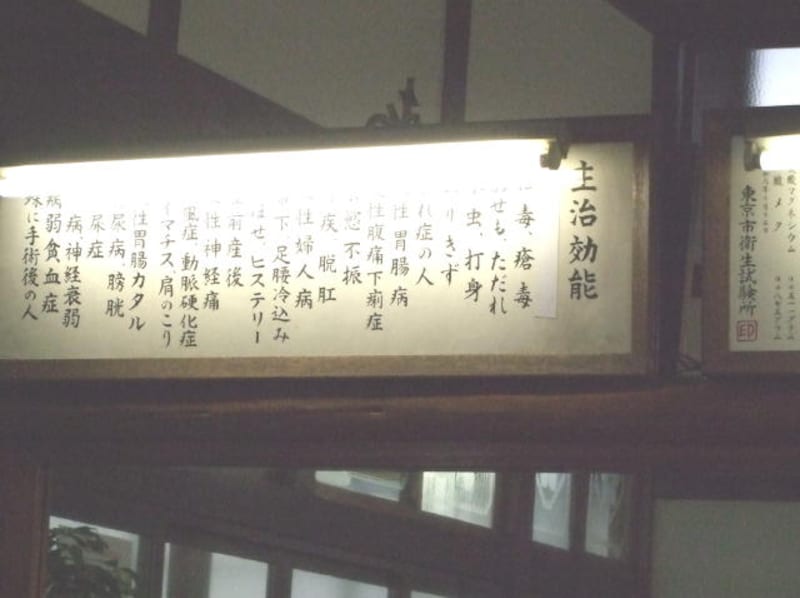 酸マグネシウム
酸メタ
東京市衛生試験所
印
主治効能
毒、瘡毒
せも、ただれ
虫、打身
りきず
れ症の人
性胃腸病
性腹痛下痢症
慾不振
疾、脱肛
性婦人病
下、足腰冷込み
ぼせ、ヒステリー
前産後
性神経痛
風症、動脈硬化症
イマチス、肩のこり
性胃腸カタル
尿病、膀胱
尿症
病、神経衰弱
病弱貧血症
殊に手術後の人